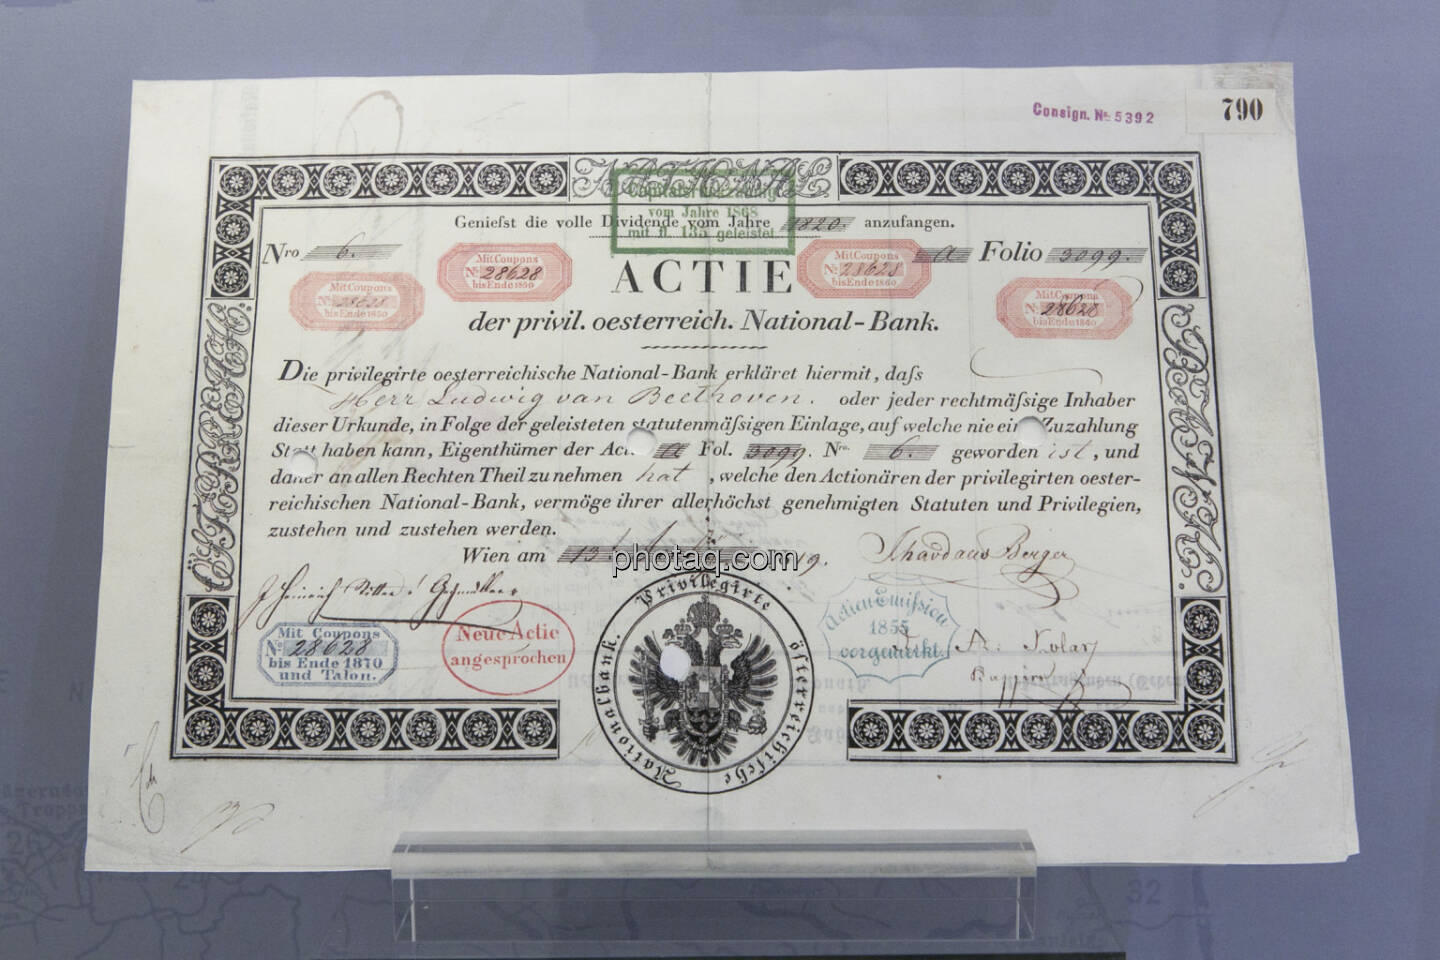 Consign. No. 5392
790
NATIONAL
Capitals-Einzahlung
vom Jahre 1868
mit fl. 135 geleistet
Genießt die volle Dividende vom Jahre 1820. anzufangen.
Nro 6.
a Folio 3099.
Mit Coupons
No. 28628
bis Ende 1850
Mit Coupons
No. 28628
bis Ende 1860
Mit Coupons
No. 28628
bis Ende 1850
Mit Coupons
No. 28628
bis Ende 1840
ACTIE
der privil. oesterreich. National-Bank.
Die privilegirte oesterreichische National-Bank erkläret hiermit, daſs
Herr Ludwig van Beethoven. oder jeder rechtmäſsige Inhaber
dieser Urkunde, in Folge der geleisteten statutenmäſsigen Einlage, auf welche nie eine Zuzahlung
Statt haben kann, Eigenthümer der Act. a Fol. 3099. Nro. 6. geworden ist, und
daher an allen Rechten Theil zu nehmen hat, welche den Actionären der privilegirten oester-
reichischen National-Bank, vermöge ihrer allerhöchst genehmigten Statuten und Privilegien,
zustehen und zustehen werden.
Wien am 13. 1819.
photaq.com
Berger
Mit Coupons
No. 28628
bis Ende 1870
und Talon.
Neue Actie
angesprochen
Privilegirte österreichische Nationalbank.
Actien Emiſsion
1855
vorgemerkt.
OESTERREICHISCHE
BANK
32